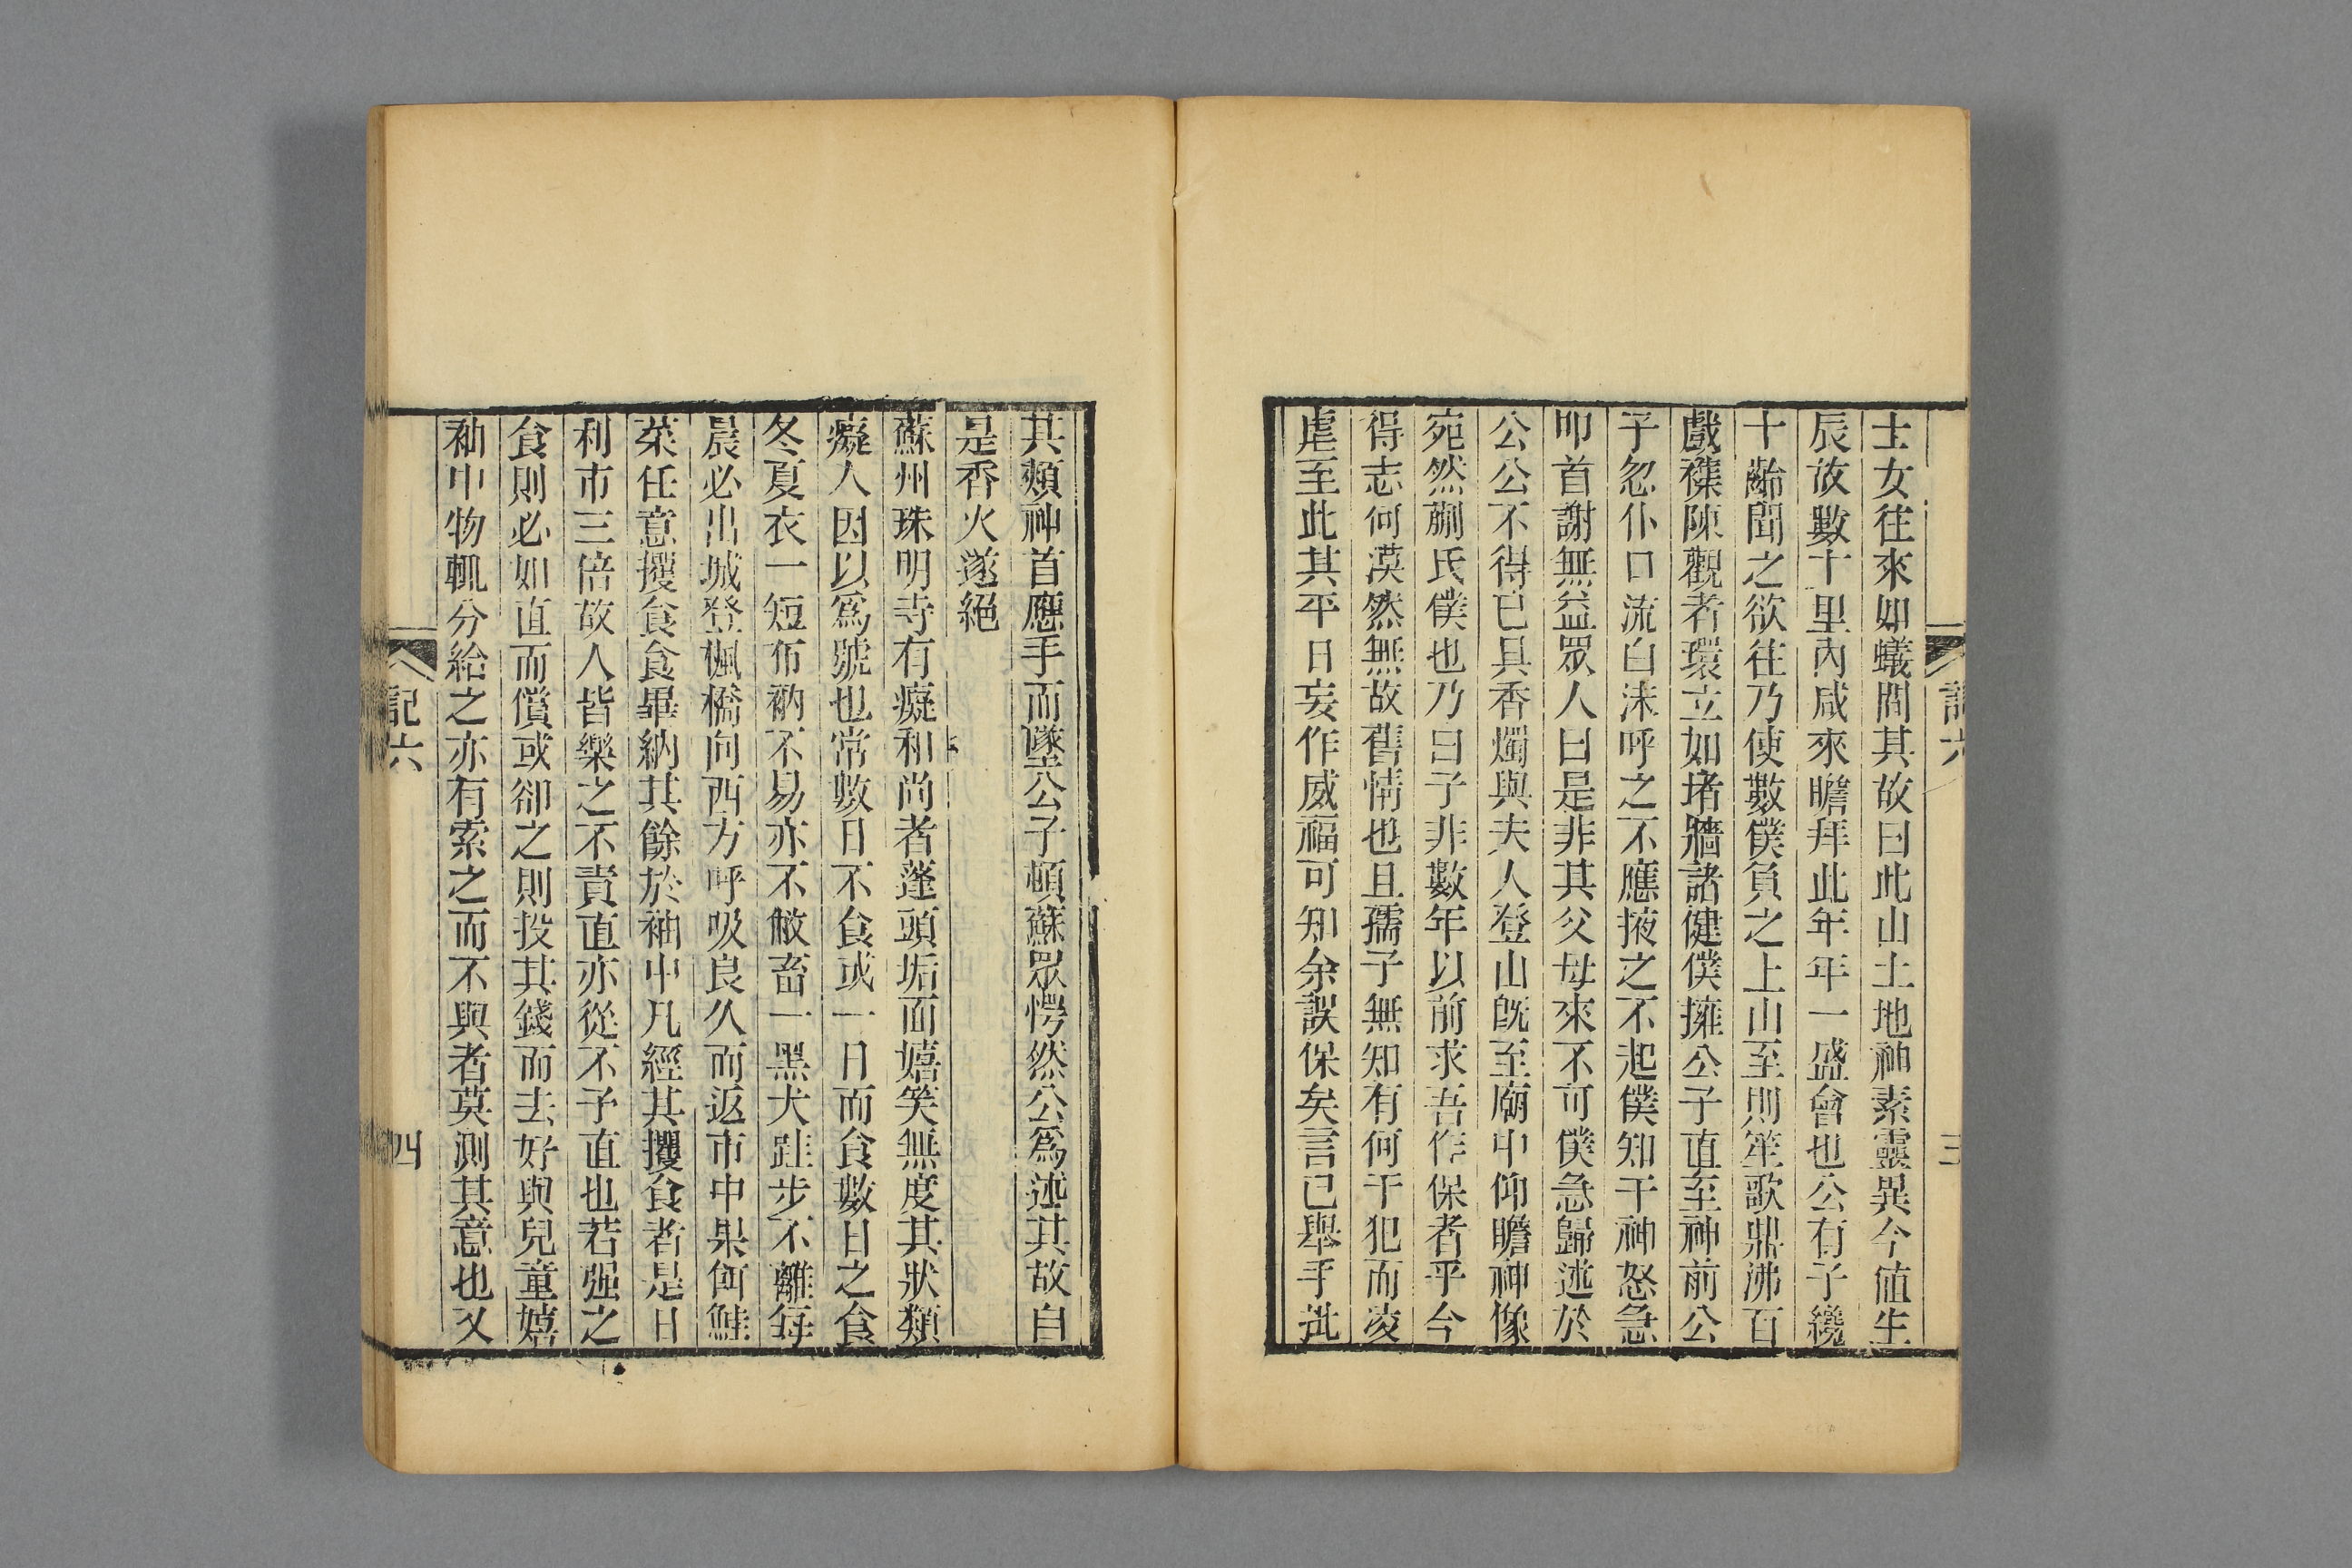 士女往來如蟻問其故曰此山土地神素靈異今値生
辰故數十里內咸來瞻拜此年年一盛會也公有子纔
十齡聞之欲往乃使數僕負之上山至則笙歌鼎沸百
戲襍陳觀者環立如堵牆諸健僕擁公子直至神前公
子忽仆口流白沫呼之不應掖之不起僕知干神怒急
叩首謝無益眾人曰是非其父母來不可僕急歸述於
公公不得已具香燭與夫人登山旣至廟中仰瞻神像
宛然蒯氏僕也乃曰子非數年以前求吾作保者乎今
得志何漠然無故舊情也且孺子無知有何干犯而凌
虐至此其平日妄作威福可知余誤保矣言已舉手批
記六
三
其頰神首應手而墜公子頓蘇眾愕然公爲述其故自
是香火遂絕
蘇州珠明寺有癡和尚者蓬頭垢面嬉笑無度其狀類
癡人因以爲號也常數日不食或一日而食數日之食
冬夏衣一短布衲不易亦不敝畜一黑犬跬步不離每
晨必出城登楓橋向西方呼吸良久而返市中果餌鮭
菜任意攫食食畢納其餘於袖中凡經其攫食者是日
利市三倍故人皆樂之不責直亦從不予直也若强之
食則必如直而償或卻之則投其錢而去好與兒童嬉
袖中物輒分給之亦有索之而不與者莫測其意也又
記六
四